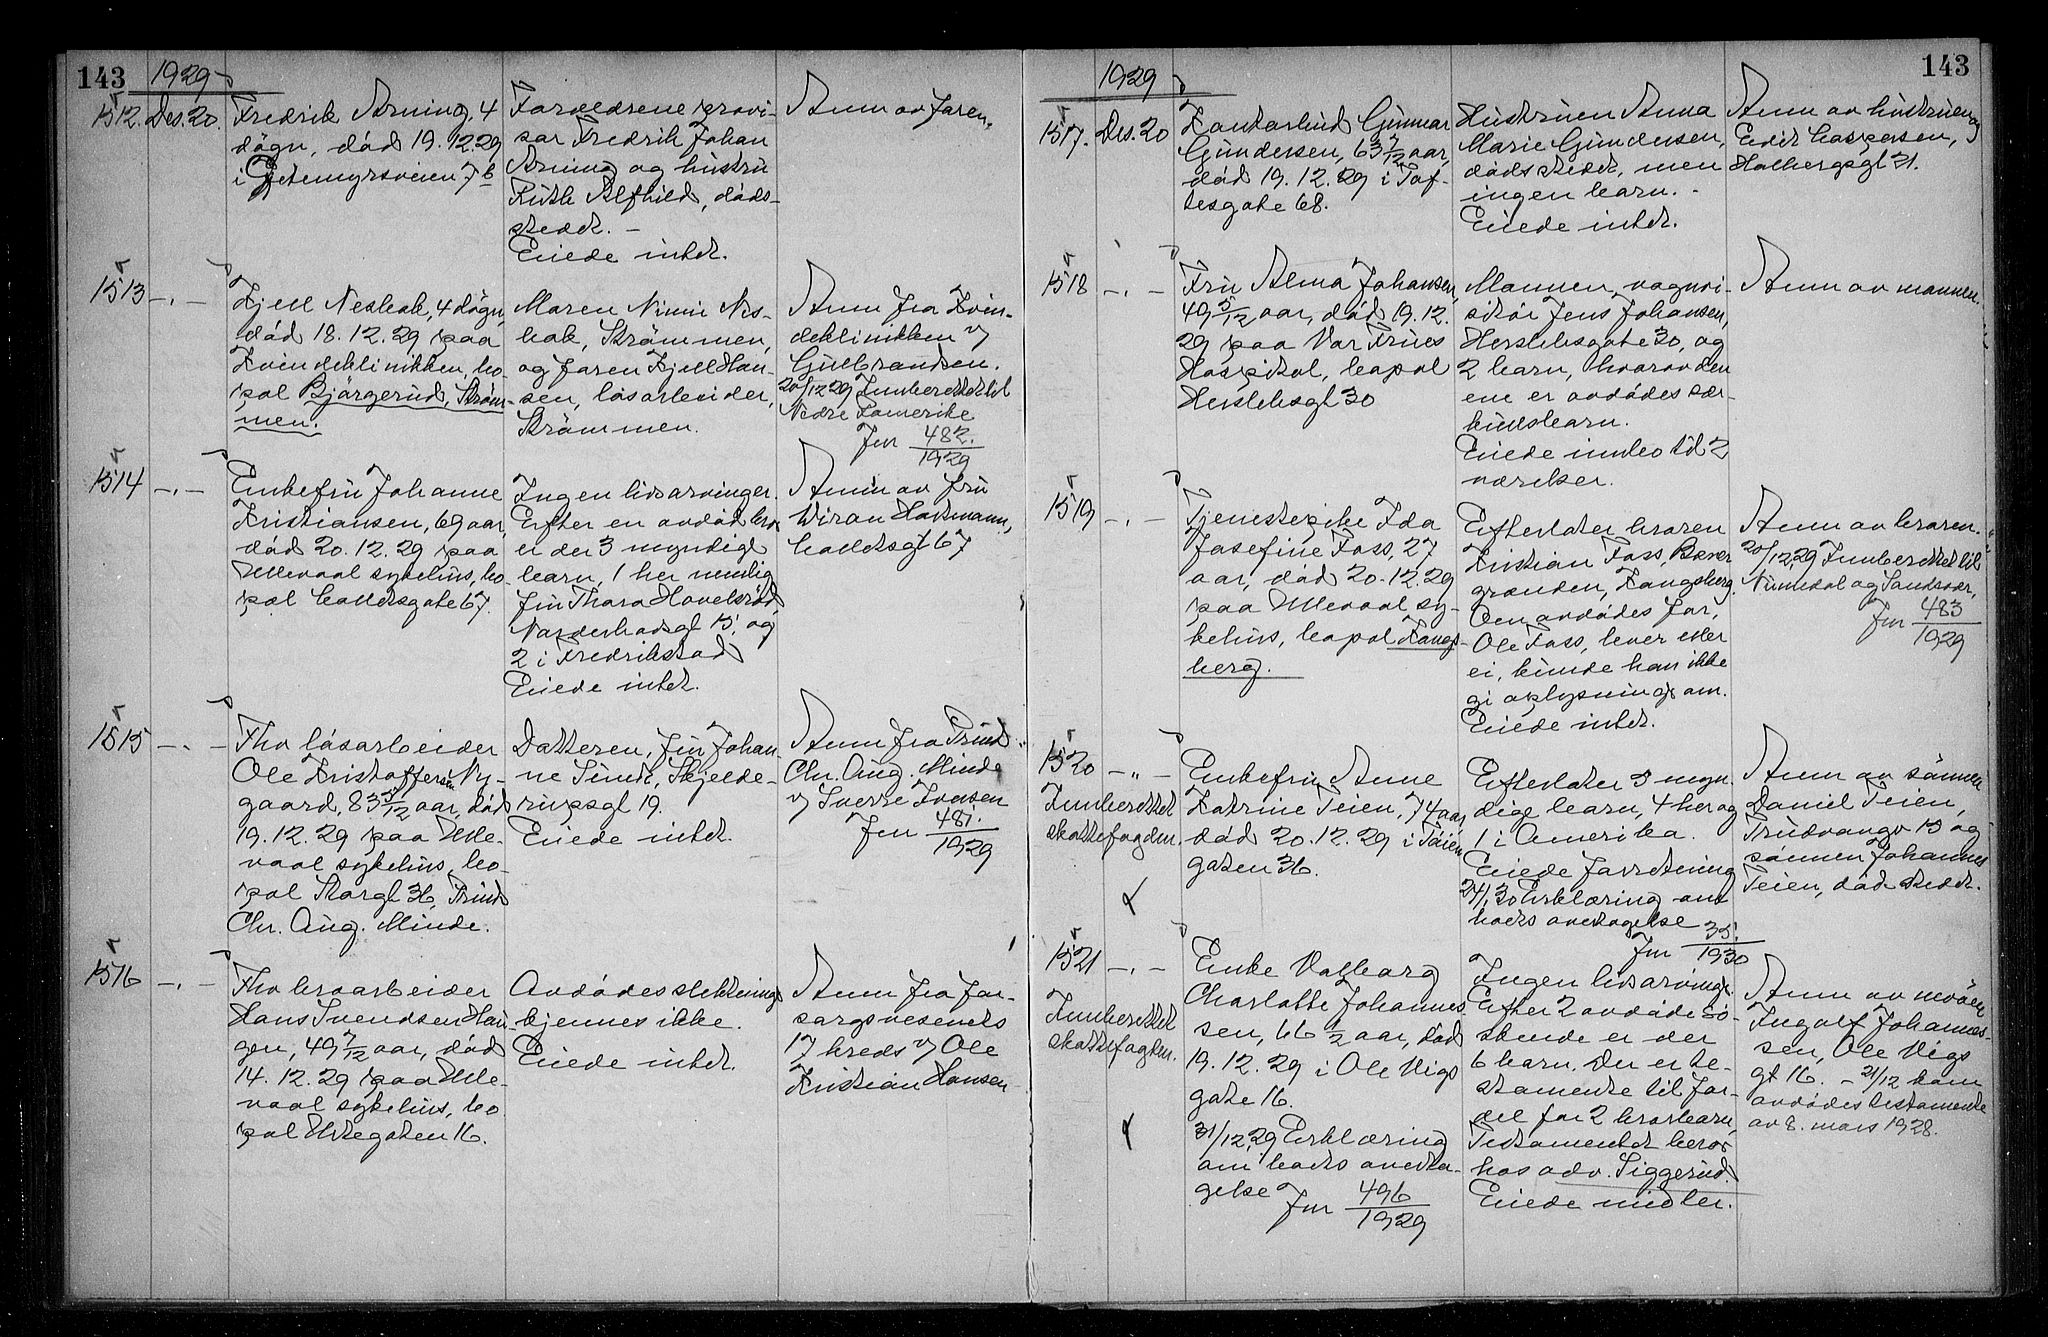 143
1929
1512. Des. 20.
Fredrik Arning, 4
døgn, död 19.12.29
i Gjetemyrsveien 7 b
Forældrene provi-
sor Fredrik Johan
Arning og hustru
Ruth Alfhild, döds-
stedet. -
Eiede intet.
Anm av faren.
1513 -.-
Kjell Neskak, 4 dögn,
död 18.12.29 paa
Kvindeklinikken, bo-
pæl Bjørgerud, Strøm-
men.
Maren Nimi Nes-
kak, Strömmen,
og faren Kjell Han-
sen, løsarbeider,
Strömmen.
Anm fra Kvin-
deklinikken v
Gulbrandsen.
20/12 29 Innberettet til
Nedre Romerike
Jnr 482.
1929
1514 -.-
Enkefru Johanne
Kristiansen, 69 aar,
död 20.12.29 paa
Ullevaal sykehus, bo-
pæl Calletsgate 67.
Ingen livsarvinger.
Efter en avdød bror
er der 3 myndige
barn, 1 her nemlig
fru Thora Havelsrød,
Narderhovsgt 15, og
2 i Fredrikstad
Eiede intet.
Anm av fru
Wiran Hartmann,
Calletsgt 67
1515 -.-
Fhv løsarbeider
Ole Kristoffersen Ny-
gaard, 83 5/12 aar, död
19.12.29 paa Ulle-
vaal sykehus, bo-
pæl Storgt 36,
Chr. Aug. Minde.
Datteren, fru Johan-
ne Sunde, Skjelde-
rupsgt 19.
Eiede intet.
Anm fra
Chr. Aug. Minde
v Sverre Iversen
Jnr 481.
1929
1516 -.-
Fhv broarbeider
Hans Svendsen Hau
gen, 49 7/12 aar, död
14.12.29 paa Ulle-
vaal sykehus, bo
pæl Urtegaten 16.
Avdødes slektninge
kjennes ikke.
Eiede intet.
Anm fra for-
sørgsvesenets
17 kreds v Ole
Kristian Hansen
143
1929
1517. Des. 20
Kontorbud Gunnar
Gundersen, 63 7/12 aar,
död 19.12.29 i Tof-
tesgate 68.
Hustruen Anna
Marie Gundersen,
dödsstedet, men
ingen barn. -
Eiede intet.
Anm av hustruen og
Edit Caspersen,
Holbergsgt 21.
1518 -.-
Fru Alma Johansen,
49 5/12 aar, död 19.12.
29 paa Vor Frues
Hospital, bopæl
Herslebsgt 30
Mannen, vognvi-
sitör Jens Johansen,
Herslebsgate 30, og
2 barn, hvorav den
ene er avdødes sær-
kulsbarn.
Eiede innbo til 2
værelser.
Anm av mannen.
1519 -.-
Tjenestepike Ida
Josefine Foss, 27
aar, död 20.12.29
paa Ullevaal sy-
kehus, bopæl Kongs-
berg.
Efterlater broren
Kristian Foss, Bæver
grænden, Kongsberg.
Om avdødes far,
Ole Foss, lever eller
ei, kunde han ikke
gi oplysninger om.
Eiede intet.
Anm av broren.
20/12 29 Innberettet til
Numedal og Sandsvær,
Jnr 483
1929
1520 -"-
Innberettet
skattefogden.
Enkefru Anne
Katrine Teien, 74 aar,
död 20.12.29 i Töien
gaten 36.
Efterlater 5 myn-
dige barn, 4 her og
1 i Amerika.
Eiede forretning
24/1 30 Erklæring om
boets overtagelse
Jnr 35.
1930
Anm av sönnen
Daniel Teien,
Trudvangv 15 og
sönnen Johannes
Teien, dødsstedet.
1521 -.-
Innberettet
skattefogden.
Enke Valborg
Charlotte Johannes-
sen, 66 1/2 aar, död
19.12.29 i Ole Vigs
gate 16.
31/12 29 Erklæring
om boets overta-
gelse
Jnr 496
1929
Ingen livsarvinge.
Efter 2 avdøde sö-
skende er der
6 barn. Der er te-
stamente til for-
del for 2 brorbarn,
Testamentet beror
hos adv. Siggerud.
Eiede midler.
Anm av nevöen
Ingolf Johannes-
sen, Ole Vigs
gt 16. - 21/12 kom
avdødes testamente
av 8. mars 1928.